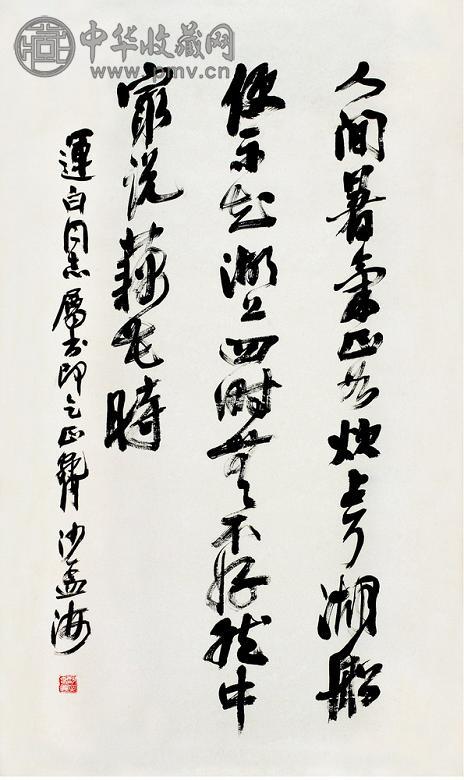 中华收藏网
www.pmv.cn
人間暑氣正如炊上了湖船
便不知湖上四时無不好就中
最说藕花時
運白同志屬書即乞正 沙孟海